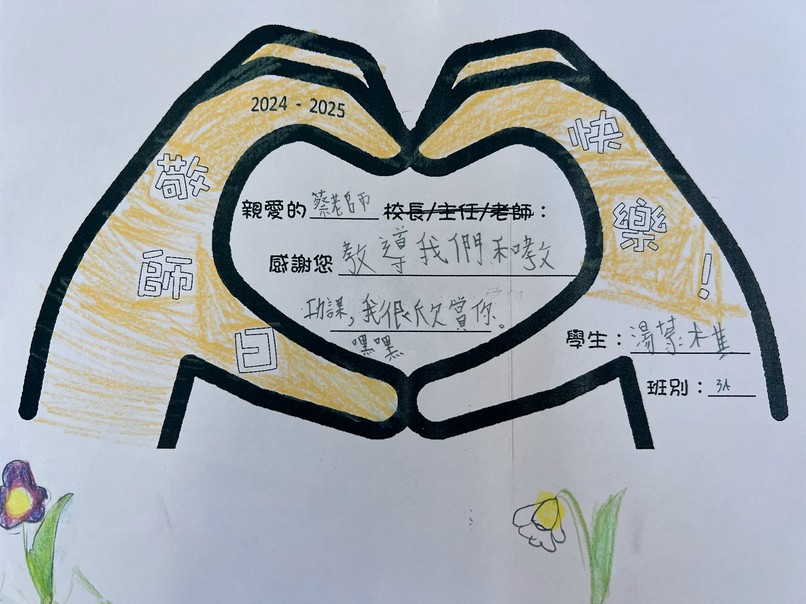 2024 - 2025
敬師日
快樂！
親愛的 蔡老師 校長/主任/老師：
感謝您 教導我們和教
功課，我很欣賞你。
嘿嘿
學生：湯
班別：3A